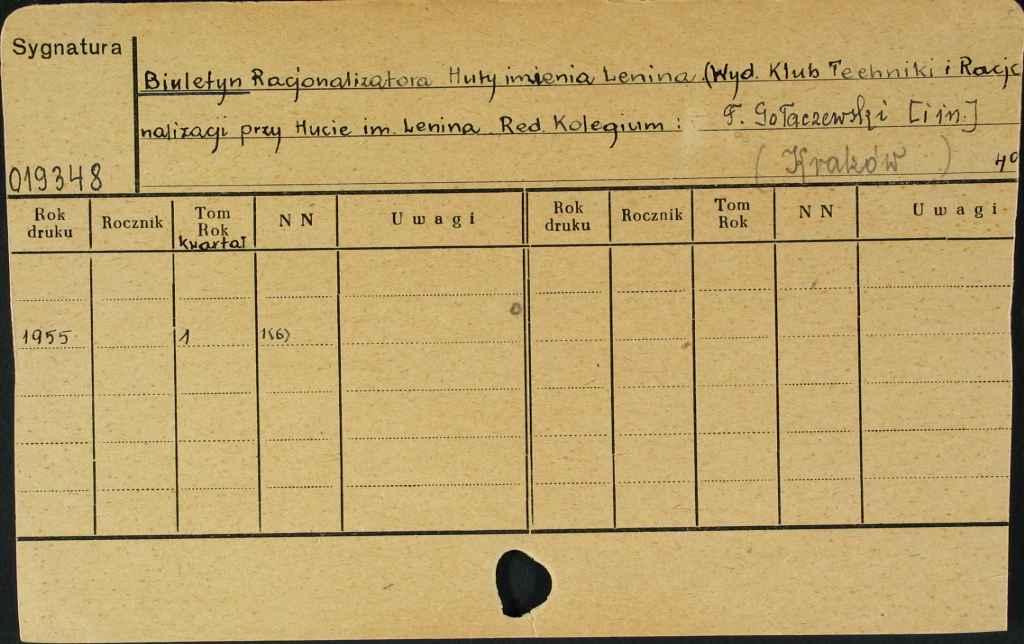 Sygnatura
Biuletyn Racjonalizatora Huty imienia Lenina. (Wyd. Klub Techniki i Racjo
nalizacji przy Hucie im. Lenina. Red. Kolegium: F. Gołaczewski [i in.]
019348
(Kraków) 4°
Rok druku Rocznik Tom Rok kwartał NN Uwagi Rok druku Rocznik Tom Rok NN Uwagi
1955 1 1(6)